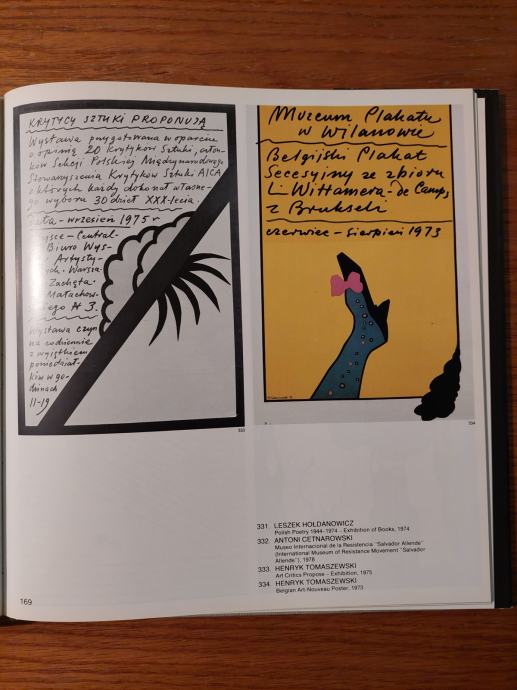 KRYTYCY SZTUKI PROPONUJĄ
Wystawa przygotowana w oparciu
o opinię 20 Krytyków Sztuki, człon-
ków Sekcji Polskiej Międzynarodowego
Stowarzyszenia Krytyków Sztuki AICA
z których każdy dokonał własne-
go wyboru 30 dzieł XXX-lecia.
- wrzesień 1975 r
- Central-
Biuro Wys-
Artysty-
ch. Warsza-
Zachęta.
Małachow-
iego № 3.
Wystawa czyn-
na codziennie
z wyjątkiem
poniedział-
ków w go-
dzinach
11-19
333
Muzeum Plakatu
w Wilanowie
Belgijski Plakat
Secesyjny ze zbioru
L. Wittamera-de Camps,
z Brukseli
czerwiec - sierpień 1973
334
331. LESZEK HOŁDANOWICZ
Polish Poetry 1944-1974 – Exhibition of Books, 1974
332. ANTONI CETNAROWSKI
Museo Internacional de la Resistencia "Salvador Allende"
(International Museum of Resistance Movement "Salvador
Allende"), 1978
333. HENRYK TOMASZEWSKI
Art Critics Propose – Exhibition, 1975
334. HENRYK TOMASZEWSKI
Belgian Art-Nouveau Poster, 1973
169